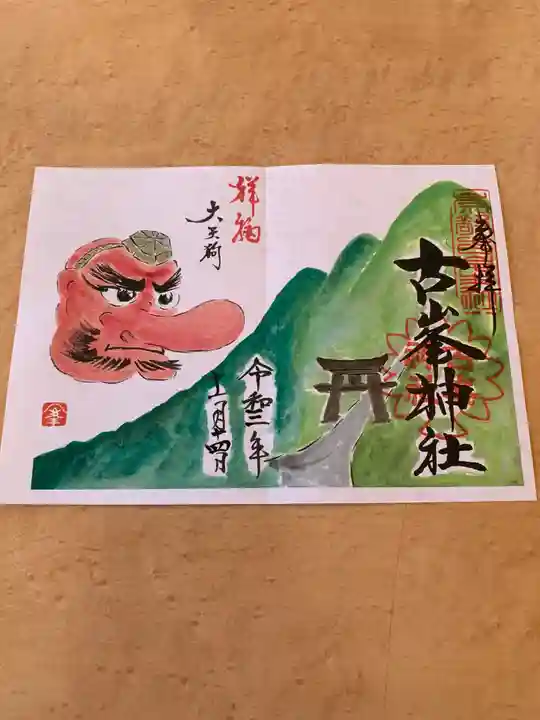 奉拝
古峯神社
令和三年
十一月廿四日
祥福
大天狗